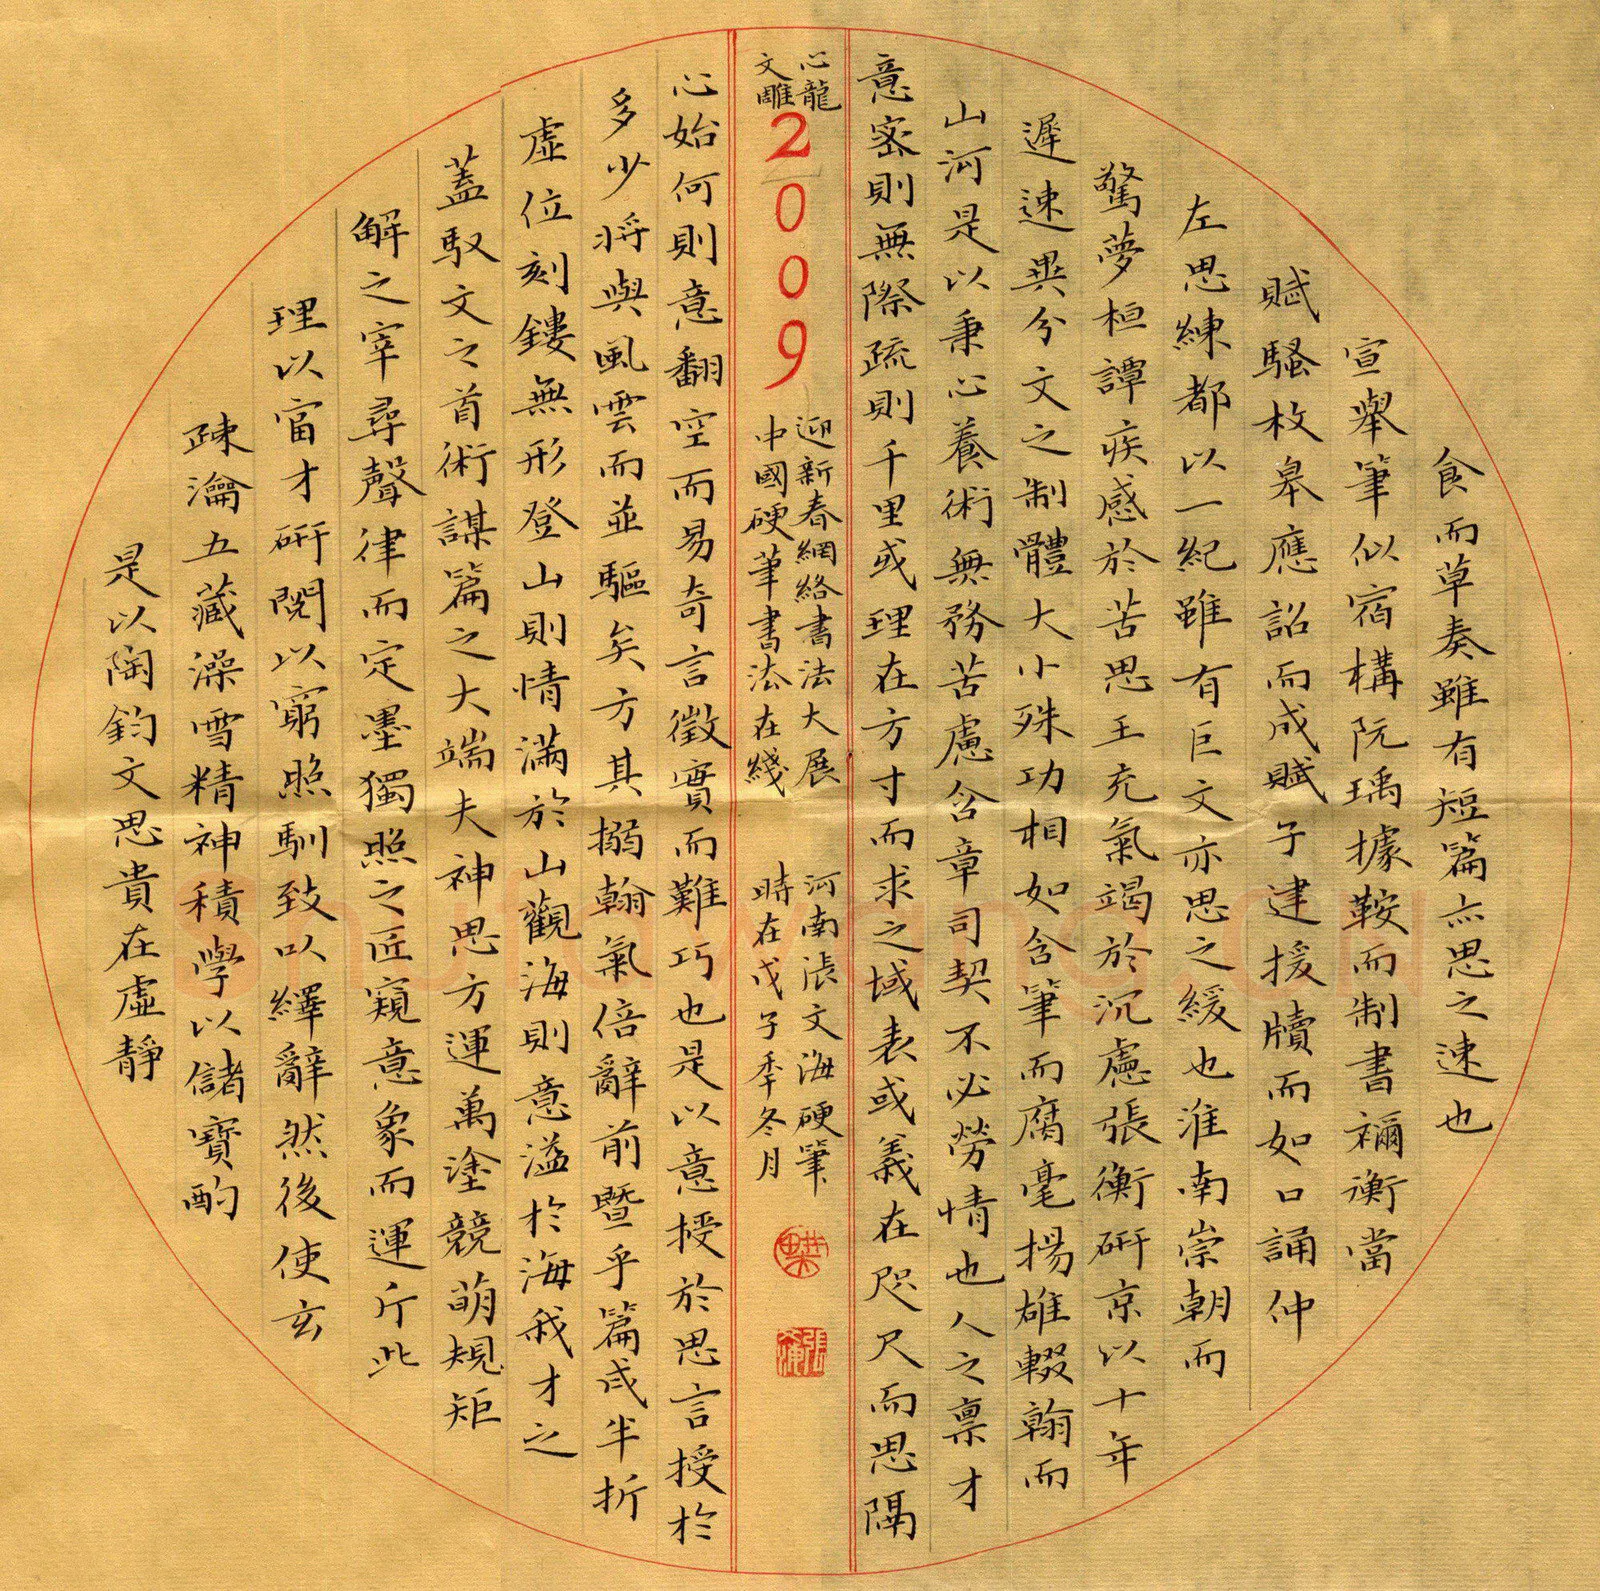 是以陶鈞文思貴在虛靜
疎瀹五藏澡雪精神積學以儲寶酌
理以富才研閱以窮照馴致以繹辭然後使玄
解之宰尋聲律而定墨獨照之匠窺意象而運斤此
蓋馭文之首術謀篇之大端夫神思方運萬塗競萌規矩
虛位刻鏤無形登山則情滿於山觀海則意溢於海我才之
多少將與風雲而並驅矣方其搦翰氣倍辭前暨乎篇成半折
心始何則意翻空而易奇言徵實而難巧也是以意授於思言授於
文心
雕龍
2009
迎新春網絡書法大展
中國硬筆書法在綫
河南張文海硬筆
時在戊子季冬月
意密則無際疏則千里或理在方寸而求之域表或義在咫尺而思隔
山河是以秉心養術無務苦慮含章司契不必勞情也人之稟才
遲速異分文之制體大小殊功相如含筆而腐毫揚雄輟翰而
驚夢桓譚疾感於苦思王充氣竭於沉慮張衡研京以十年
左思練都以一紀雖有巨文亦思之緩也淮南崇朝而
賦騷枚皋應詔而成賦子建援牘而如口誦仲
宣舉筆似宿構阮瑀據鞍而制書禰衡當
食而草奏雖有短篇亦思之速也